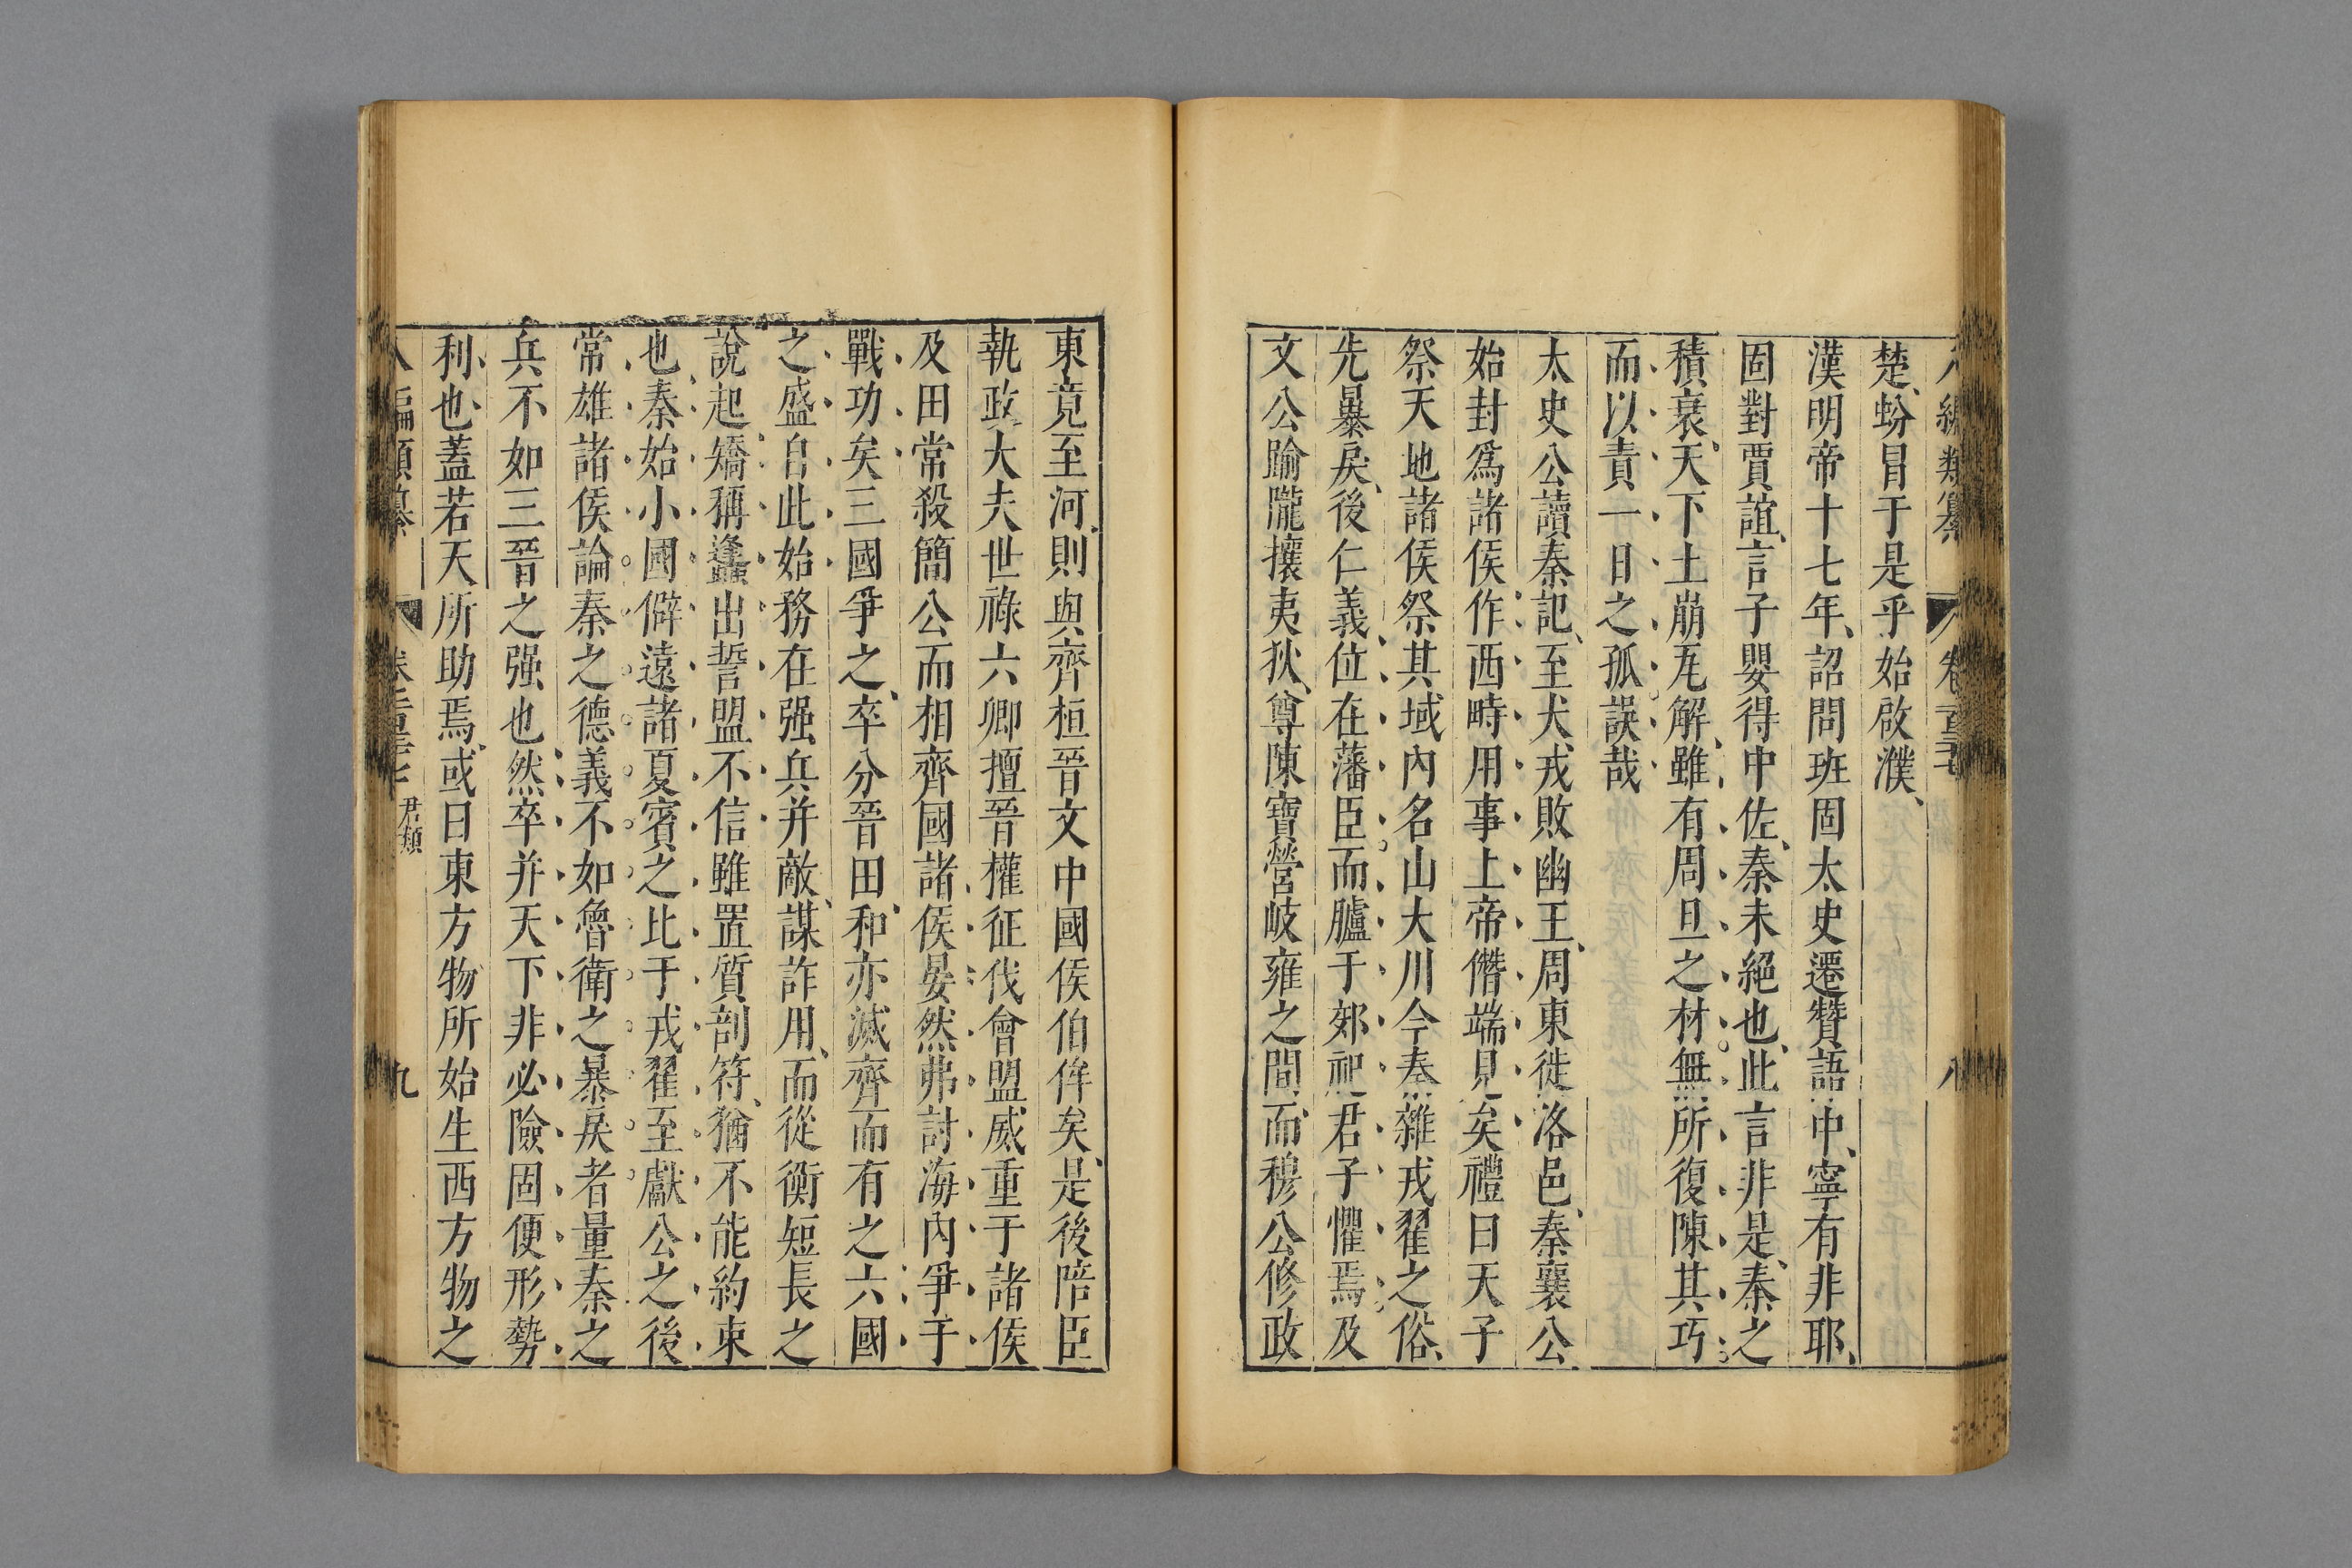 楚蚡冒于是乎始啟濮
漢明帝十七年詔問班固太史遷贊語中寧有非耶
固對賈誼言子嬰得中佐秦未絕也此言非是秦之
積衰天下土崩瓦解雖有周旦之材無所復陳其巧
而以責一日之孤誤哉
太史公讀秦記至犬戎敗幽王周東徙洛邑秦襄公
始封爲諸侯作西畤用事上帝僭端見矣禮曰天子
祭天地諸侯祭其域內名山大川今秦雜戎翟之俗
先暴戾後仁義位在藩臣而臚于郊祀君子懼焉及
文公踰隴攘夷狄尊陳寶營岐雍之間而穆公修政
東竟至河則與齊桓晉文中國侯伯侔矣是後陪臣
執政大夫世祿六卿擅晉權征伐會盟威重于諸侯
及田常殺簡公而相齊國諸侯晏然弗討海內爭于
戰功矣三國爭之卒分晉田和亦滅齊而有之六國
之盛自此始務在强兵并敵謀詐用而從衡短長之
說起矯稱蠭出誓盟不信雖置質剖符猶不能約束
也秦始小國僻遠諸夏賓之比于戎翟至獻公之後
常雄諸侯論秦之德義不如魯衛之暴戾者量秦之
兵不如三晉之强也然卒并天下非必險固便形勢
利也蓋若天所助焉或曰東方物所始生西方物之
君類
九